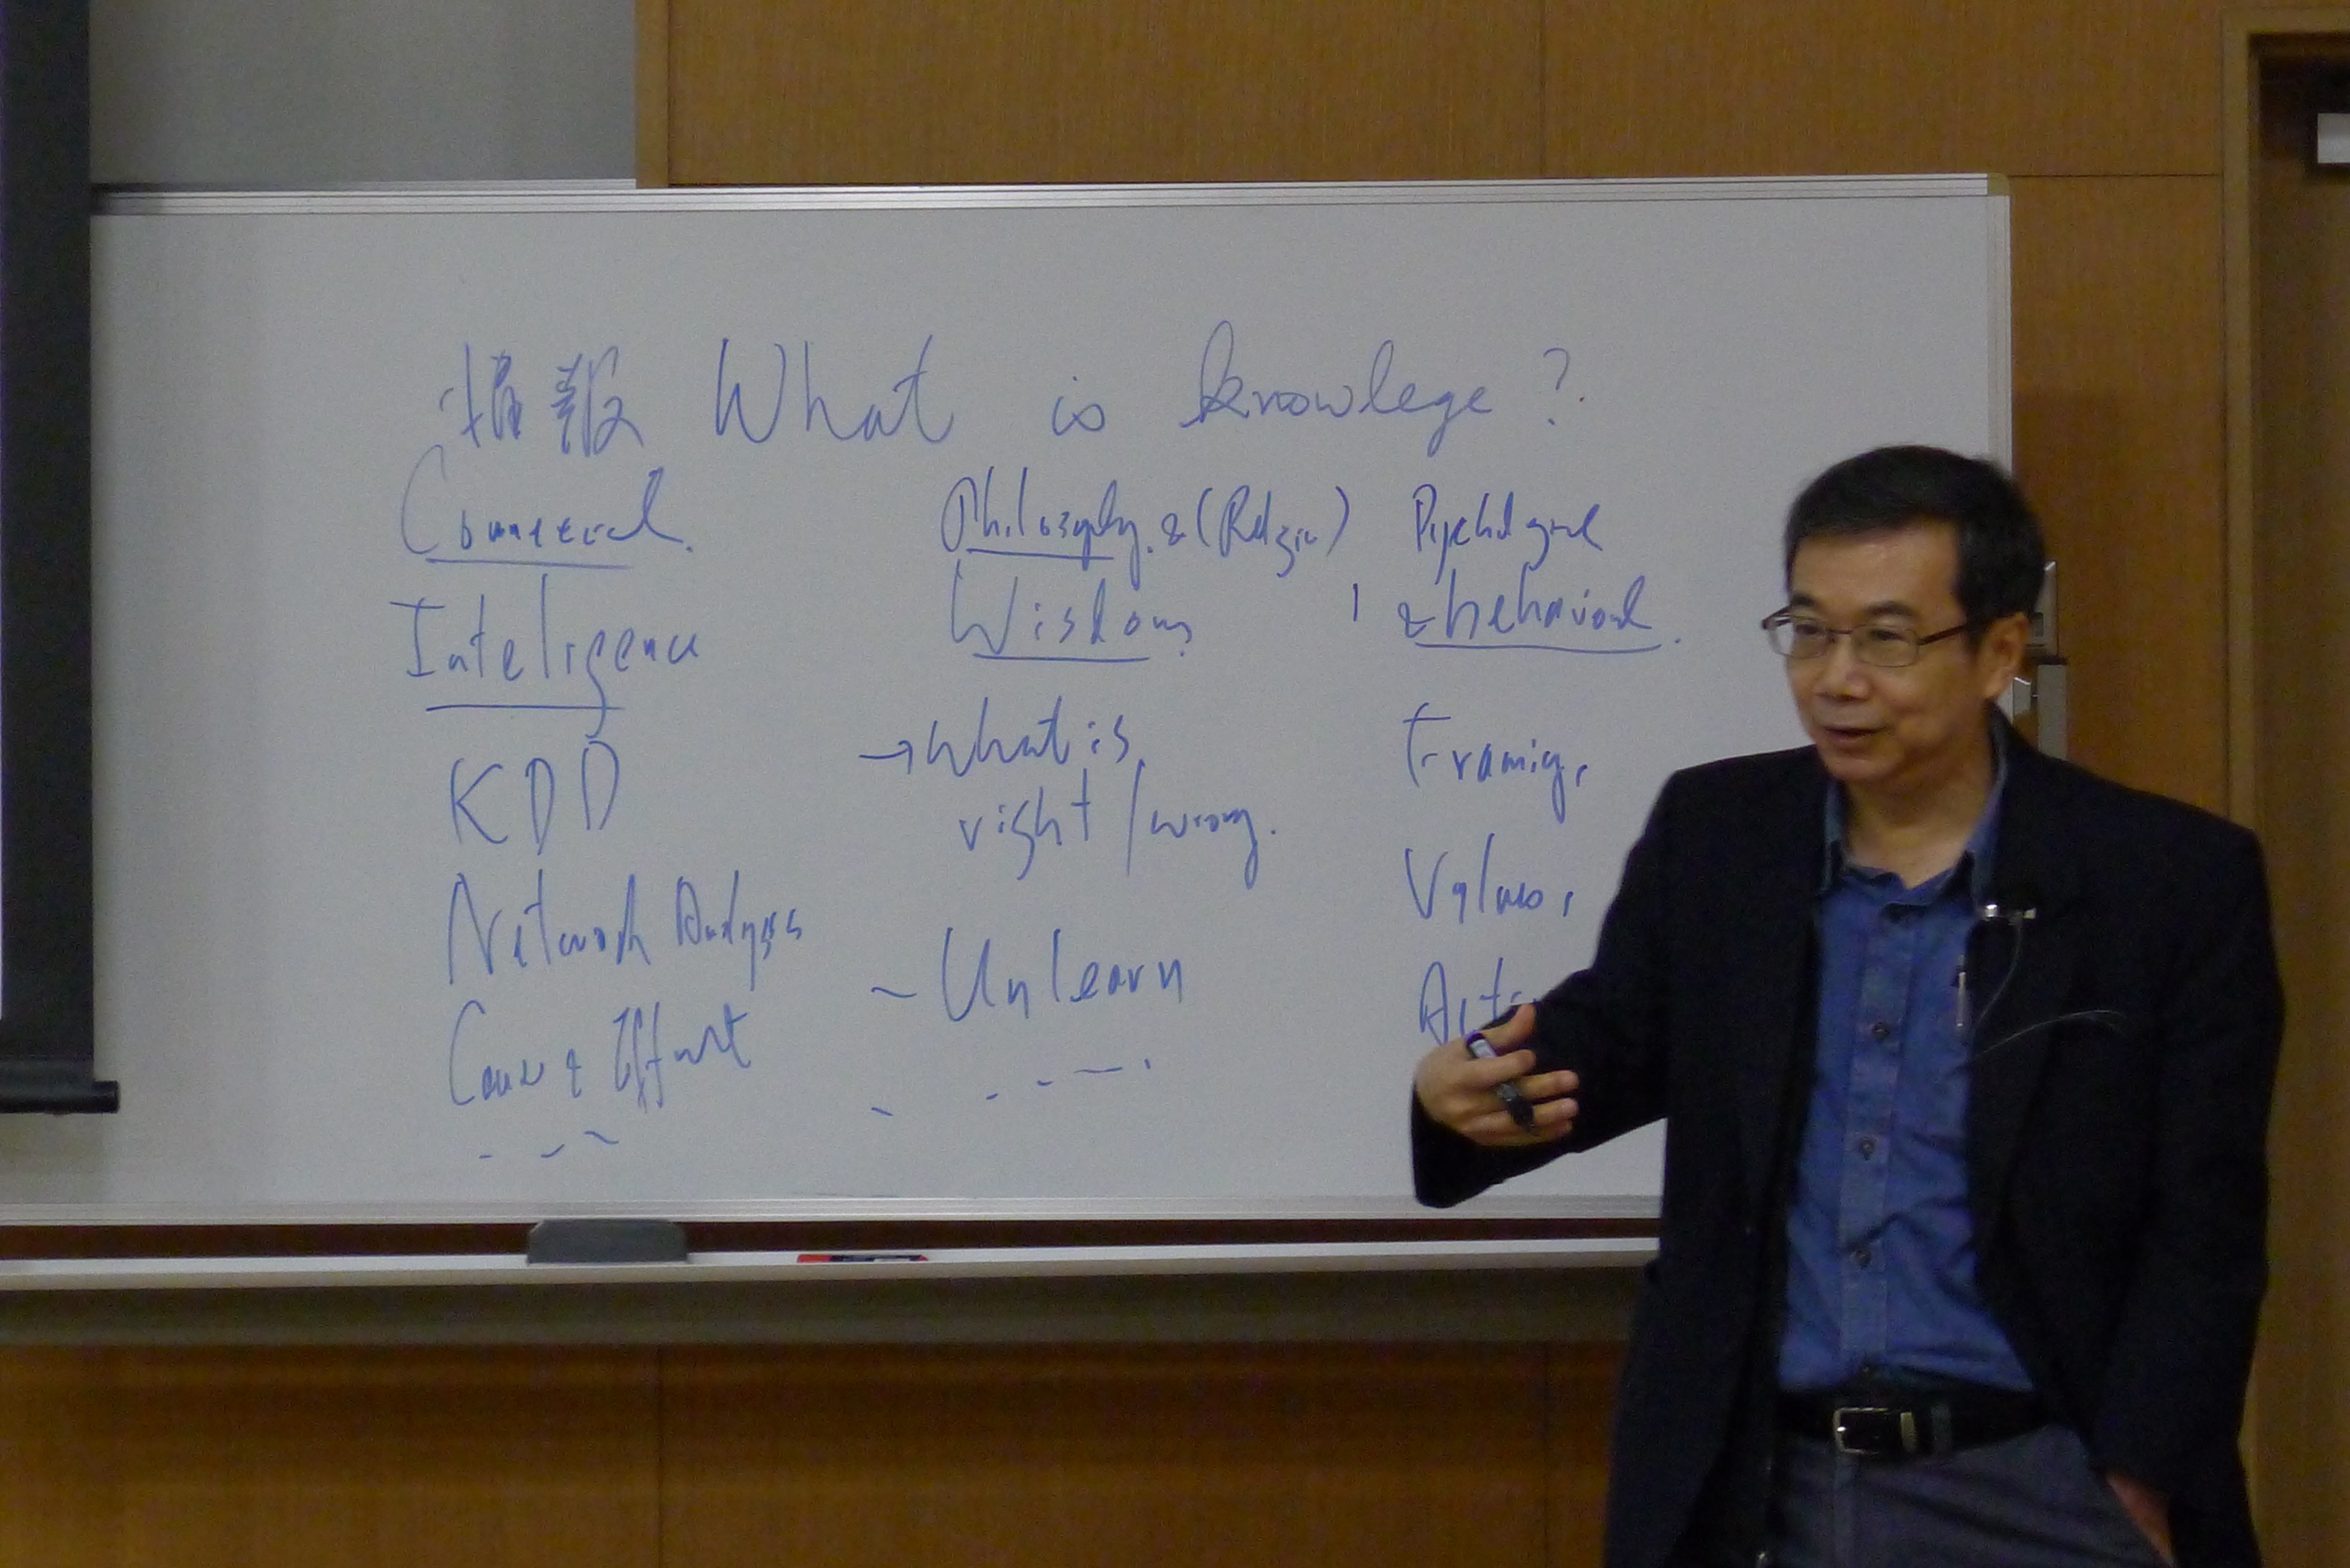 情報 What is knowlege?
Commercial.
Inteligence
KDD
Network Analysis
Cause & Effect
Philosophy & (Religion)
Wisdom
→ What is
right / wrong.
~ Unlearn
Psychological
& behavioral.
Framing,
Values,